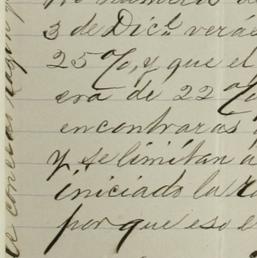 numeros
3 de Dicbe. verás
25%, y que el
era de 22%
encontraras
y se limitan a
iniciado la
por que eso e